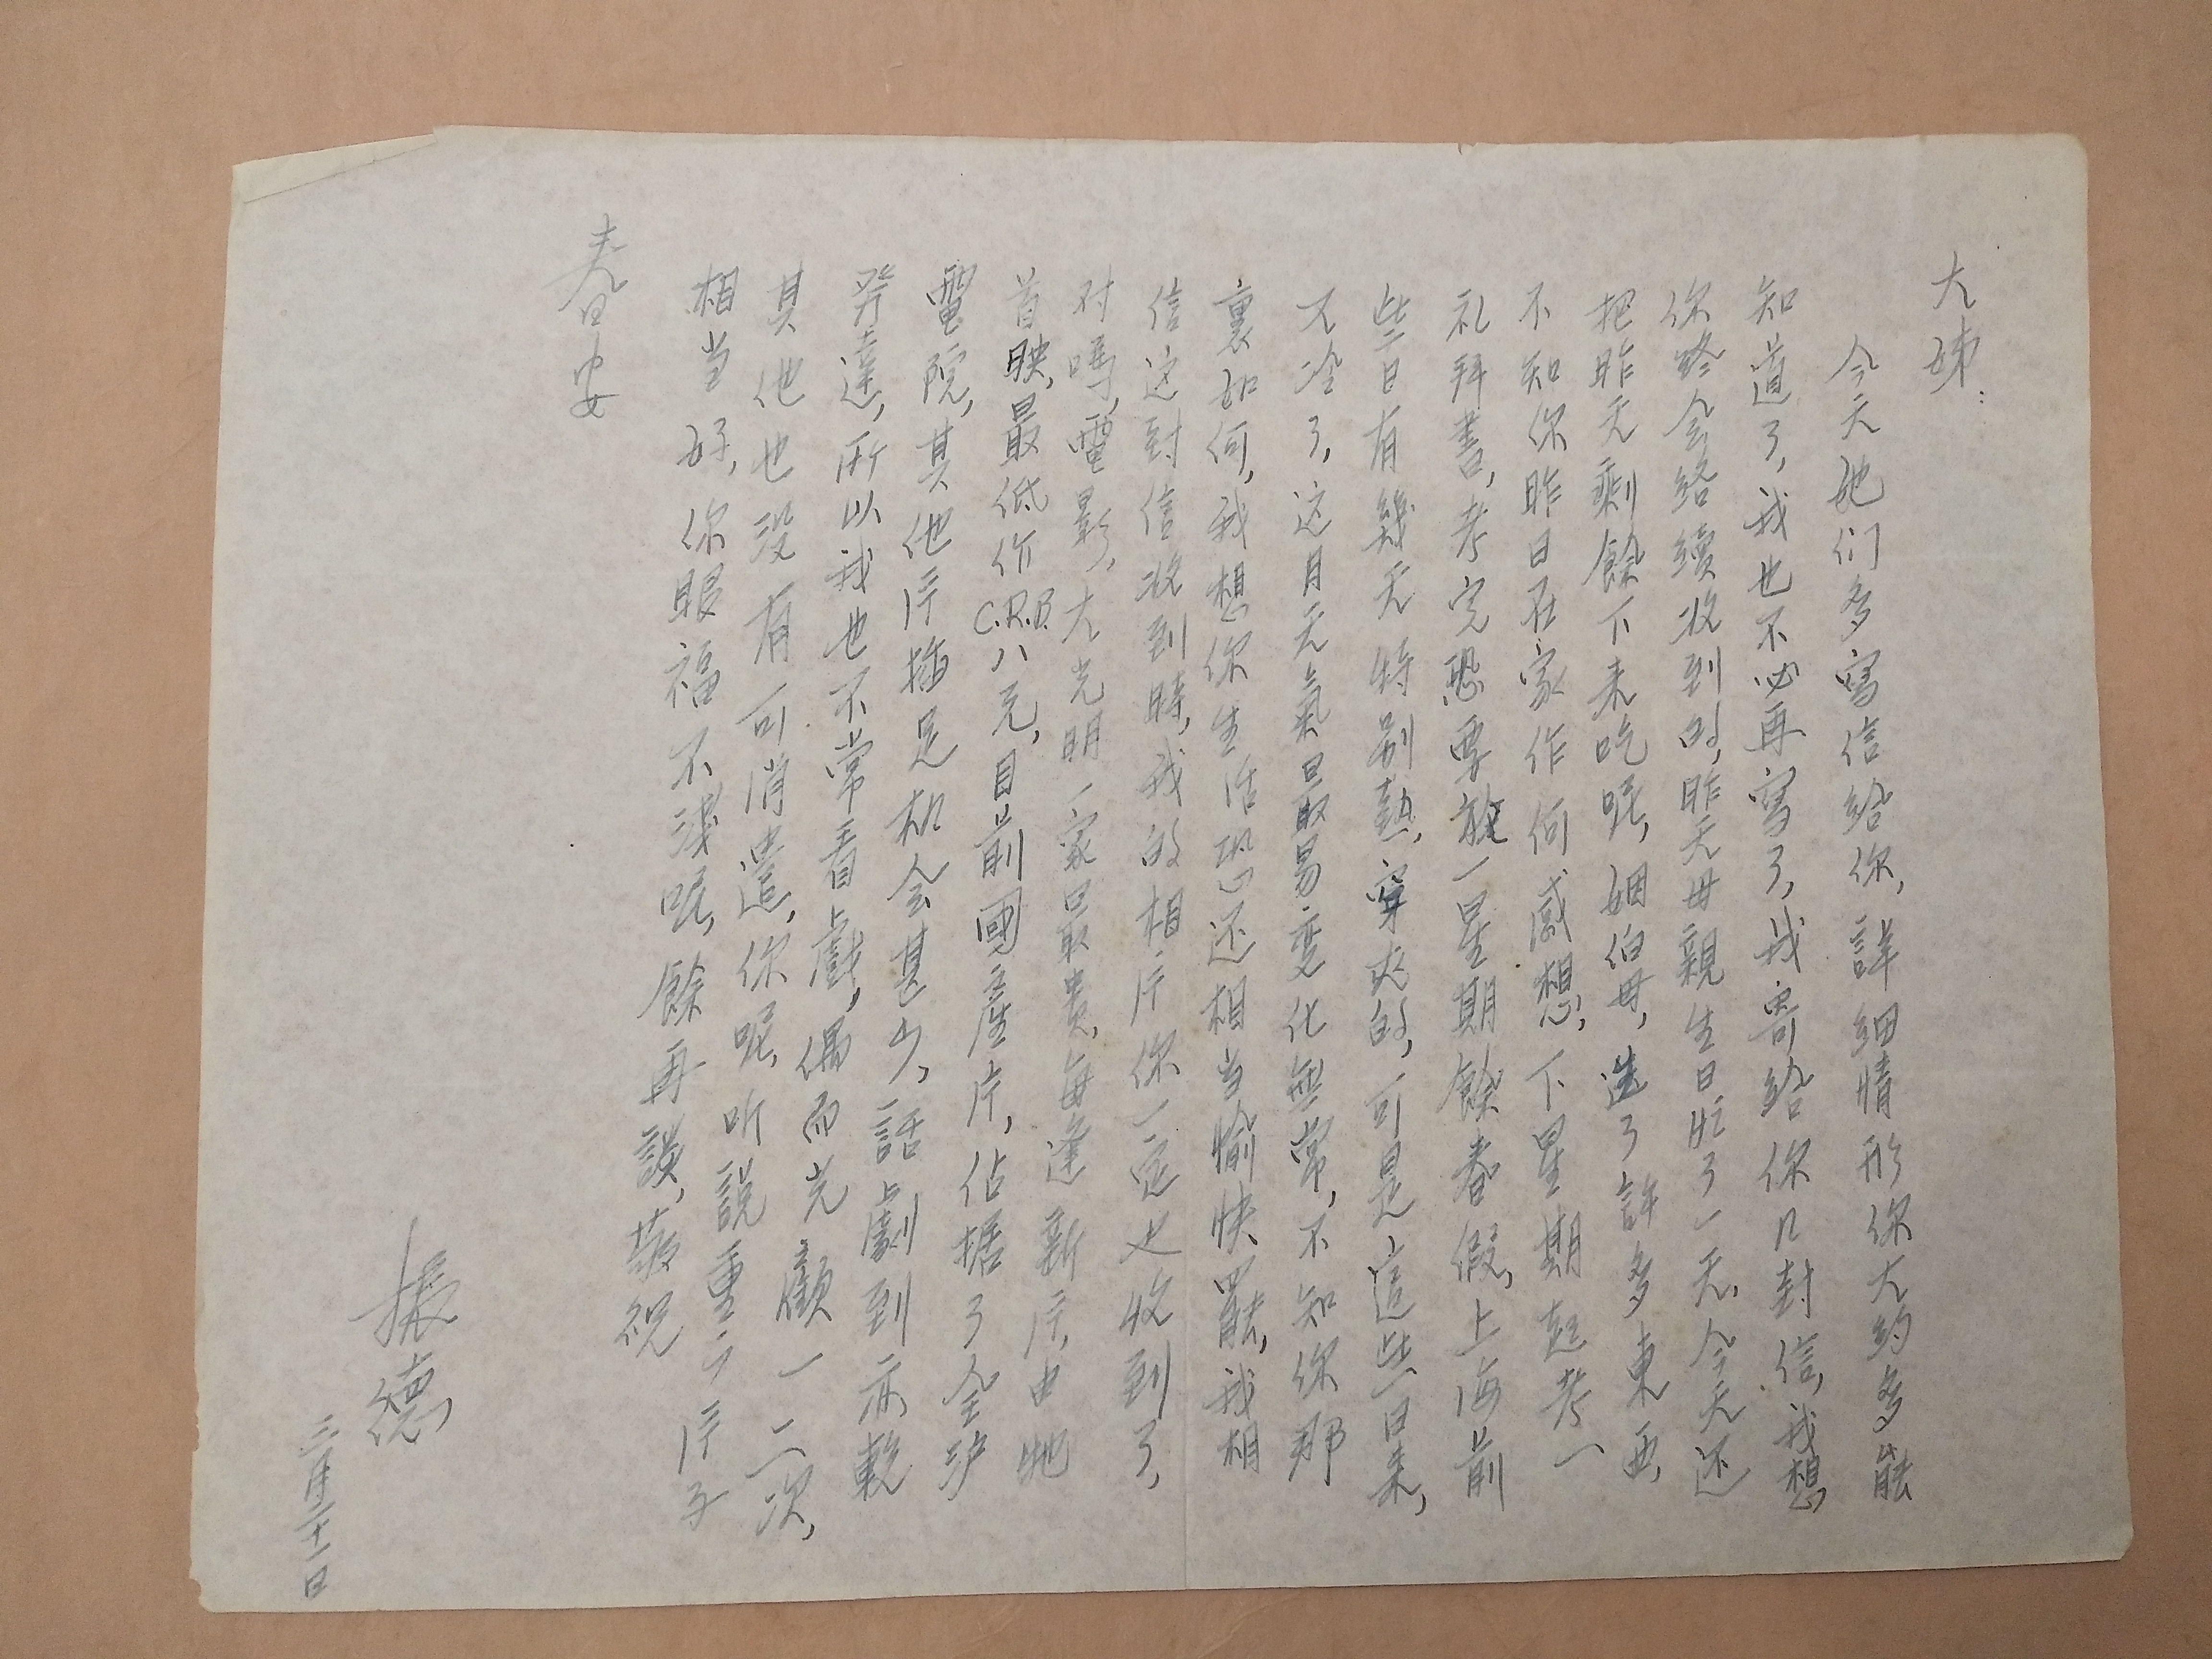 大姊：
今天她们多寫信给你，詳細情形你大约多能
知道了，我也不必再寫了，我寄给你几封信，我想
你終会络續收到的，昨天母親生日忙了一天，今天还
把昨天剩餘下来吃呢，姻伯母，送了許多東西，
不知你昨日在家作何感想，下星期起考一
礼拜書，考完恐要放一星期餘春假，上海前
些日有幾天特别熱，穿夾的，可是這些日来，
又冷了，这月天氣最易变化無常，不知你那
裏如何，我想你生活恐还相当愉快罷，我相
信这封信收到時，我的相片你一定也收到了，
对嗎，電影，大光明一家最贵，每逢新片，由牠
首映，最低价C.R.B.八元，目前國產片，佔据了全沪
電院，其他片插足机会甚少，話劇到亦較
發達，所以我也不常看戲，偶而光顧一二次，
其他也没有可消遣，你呢，听説重慶片子
相当好，你眼福不淺呢，餘再談，敬祝
春安
振德，
三月二十一日